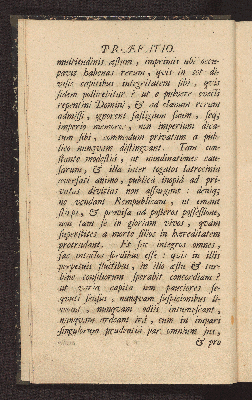 PRÆFATIO.
multitudinis æstum, imprimis ubi occu-
pavit habenas rerum, quis in tot di-
versis capitibus integritatem sibi, quis
fidem pollicebitur? ut a pulvere
repentini Domini, & ad clavum rerum
admissi, ignorent fastigium suum,
imperio memores, non imperium
sibi, commodum privatum a pub-
lico nunquam distinguant. Tam con-
stante modestiâ, ut nundinationes cau-
sarum, & illa inter togatos latrocinia
aversati animo, publicâ inopiâ ad pri-
vatas devitias non assurgant: denique
ne vendant Rempublicam, ut emant
& provisa ad posteros possessione,
non tam se in gloriam vivos, quàm
superstites a morte filios in hæreditatem
protrudant. Et fac integros omnes,
fac intactos sordibus esse: quis in illis
perpetuis fluctibus, in illo æstu & tur-
bine consiliorum sperabit concordiam?
ut varia capita non pauciores se-
quuti sensus, nunquam suspicionibus li-
veant, nunquam odiis intumescant,
nunquam ardeant irâ, cum in impari
singulorum prudentiâ par omnium jus,
& pro